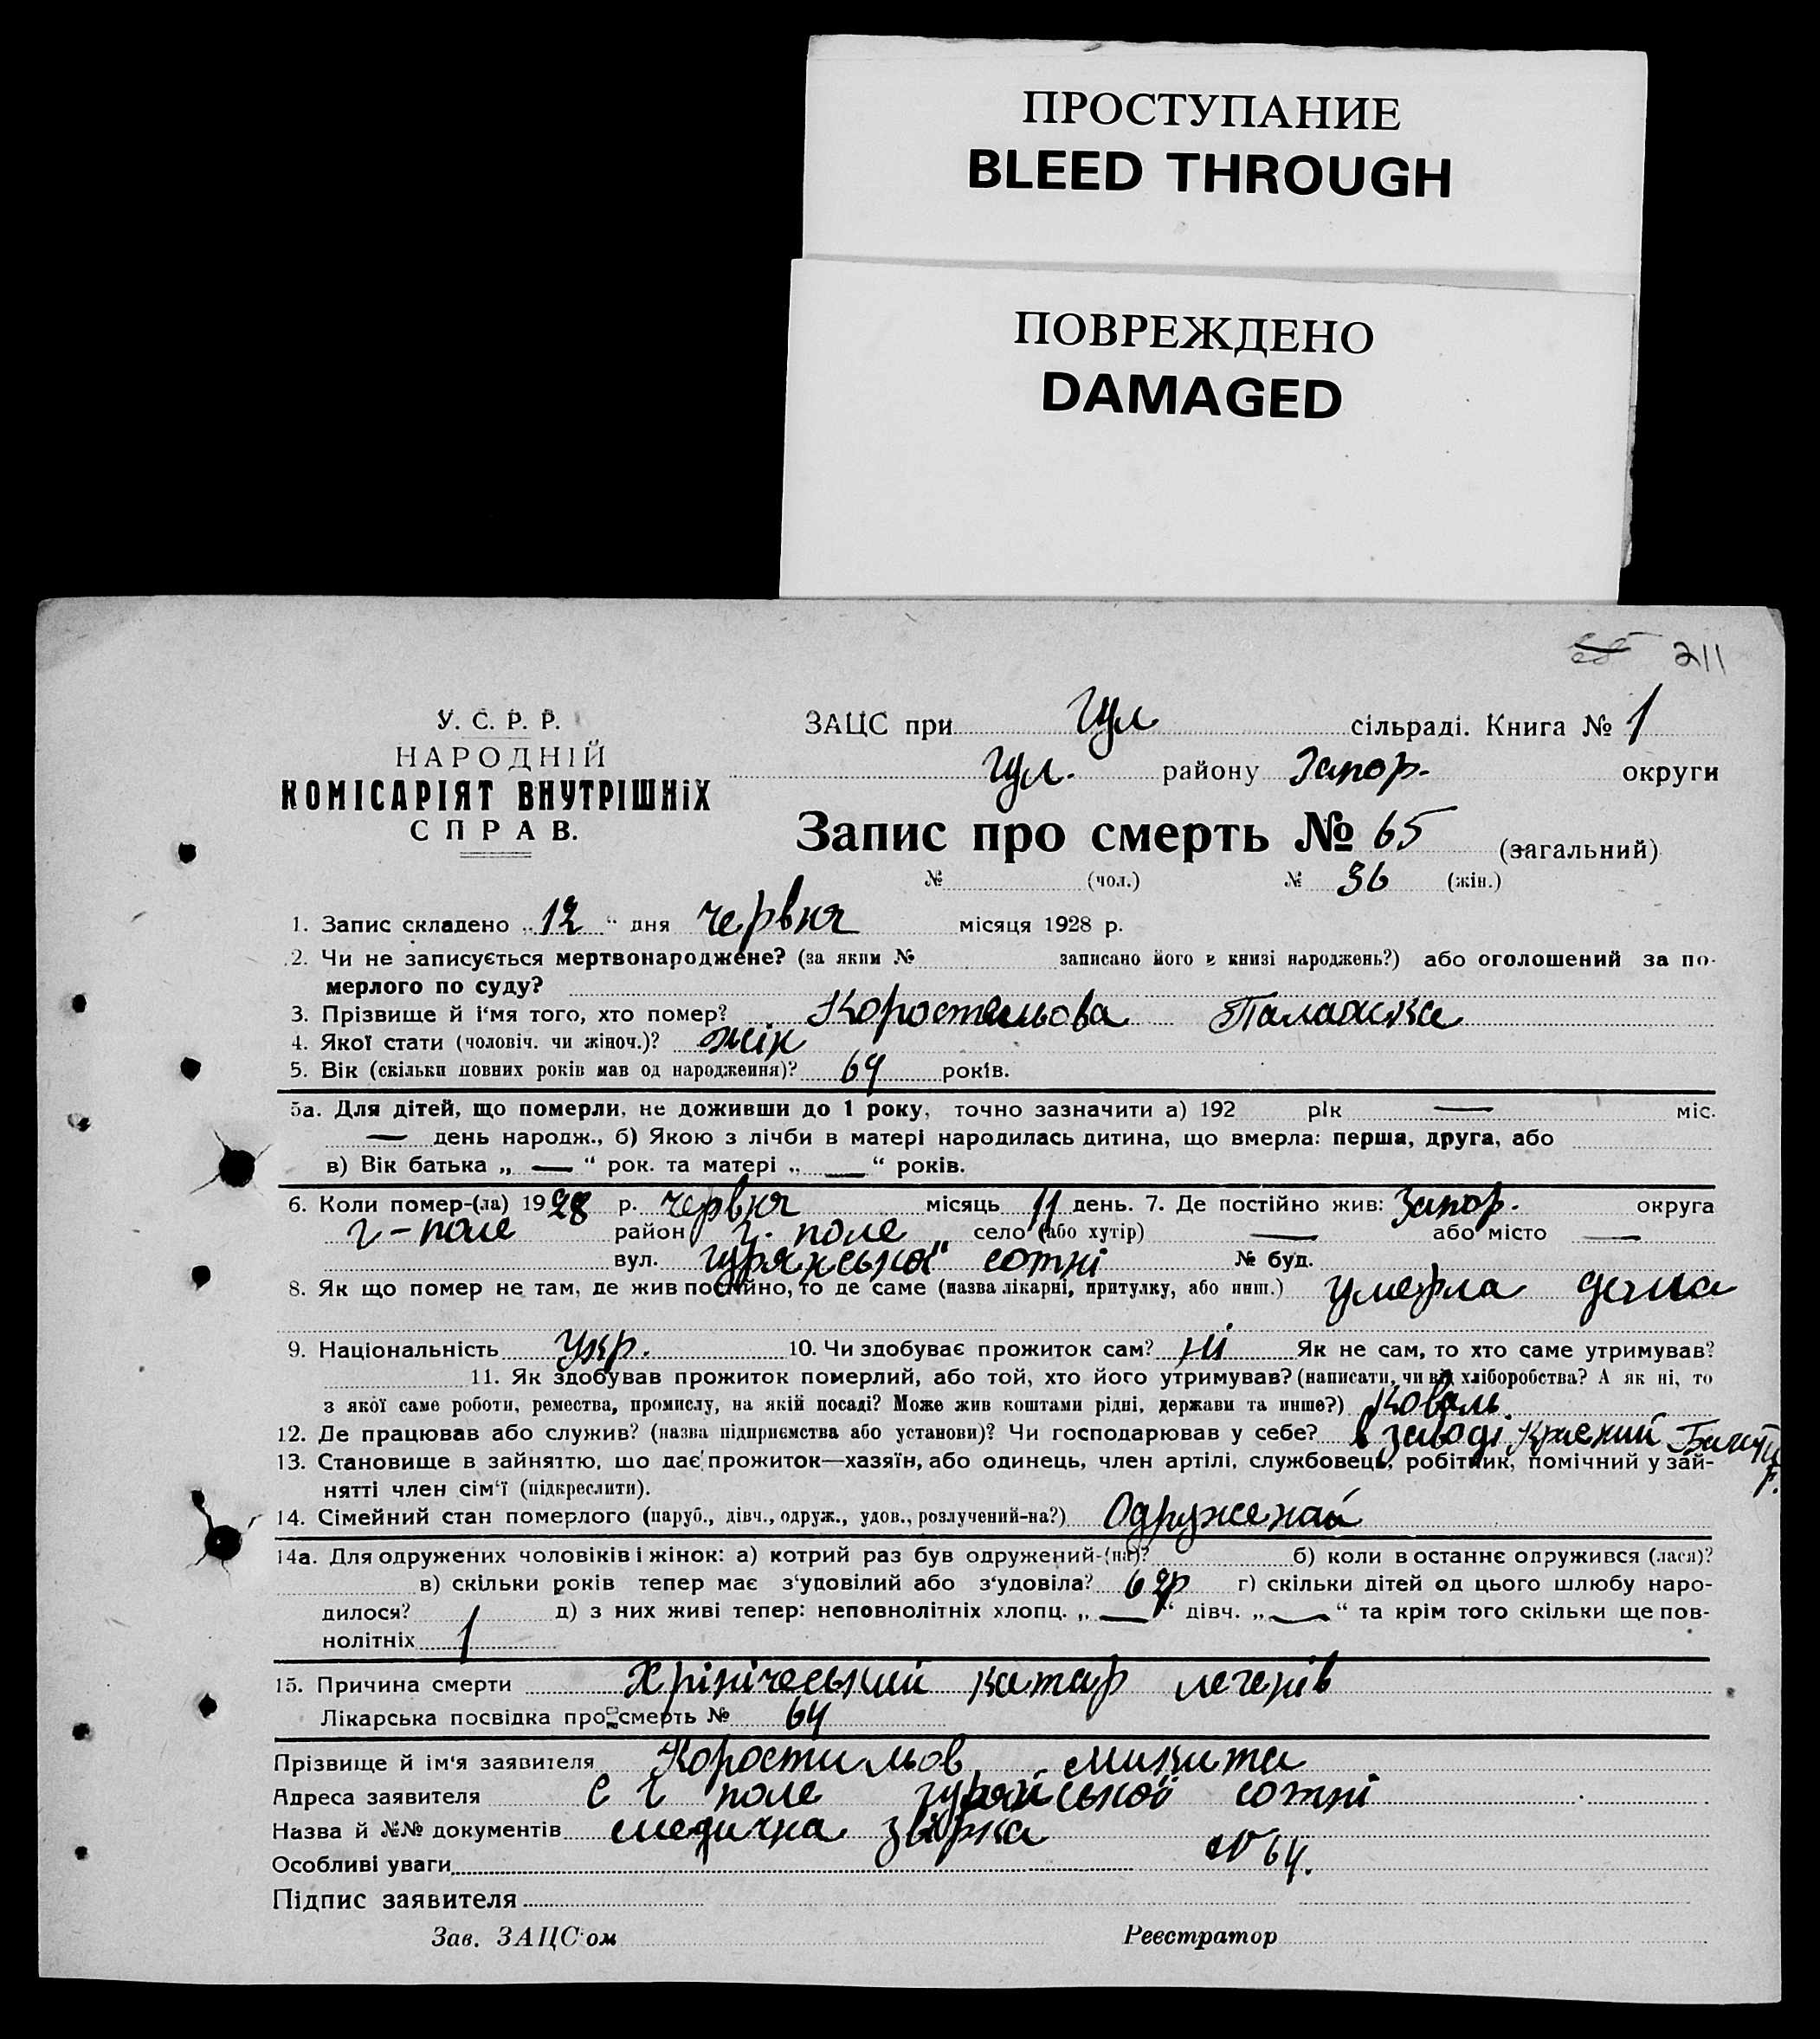 ПРОСТУПАНИЕ
BLEED THROUGH
ПОВРЕЖДЕНО
DAMAGED
211
У. С. Р. Р.
НАРОДНІЙ
КОМІСАРІЯТ ВНУТРІШНіХ
СПРАВ.
ЗАЦС при Гул сільраді. Книга № 1
Гул. району Запор. округи
Запис про смерть № 65 (загальний)
№ (чол.) № 36 (жін.)
1. Запис складено „12“ дня червня місяця 1928 р.
2. Чи не записується мертвонароджене? (за яким № записано його в книзі народжень?) або оголошений за по-
мерлого по суду?
3. Прізвище й і'мя того, хто помер? Коростельова Палажка
4. Якої стати (чоловіч. чи жіноч.)? жін
5. Вік (скільки повних років мав од народження)? 64 років.
5а. Для дітей, що померли, не доживши до 1 року, точно зазначити а) 192 рік — міс.
— день народж., б) Якою з лічби в матері народилась дитина, що вмерла: перша, друга, або
в) Вік батька „ — “ рок. та матері „ — “ років.
6. Коли помер-(ла) 1928 р. червня місяць 11 день. 7. Де постійно жив: Запор. округа
г-поле район г. поле село (або хутір) — або місто —
вул. сотні № буд.
8. Як що помер не там, де жив постійно, то де саме (назва лікарні, притулку, або инш.) умерла дома
9. Національність Укр. 10. Чи здобуває прожиток сам? ні Як не сам, то хто саме утримував?
11. Як здобував прожиток померлий, або той, хто його утримував? (написати, чи від хліборобства? А як ні, то
з якої саме роботи, ремества, промислу, на якій посаді? Може жив коштами рідні, держави та инше?) Коваль
12. Де працював або служив? (назва підприємства або установи)? Чи господарював у себе? в заводі Красний
13. Становище в зайняттю, шо дає прожиток—хазяїн, або одинець, член артілі, службовець, робітник, помічний у зай-
нятті член сім'ї (підкреслити).
14. Сімейний стан померлого (паруб., дівч., одруж., удов., розлучений-на?) Одруженай
14а. Для одружених чоловіків і жінок: а) котрий раз був одружений-(на)? б) коли востаннє одружився (лася)?
в) скільки років тепер має з'удовілий або з'удовіла? г) скільки дітей од цього шлюбу наро-
дилося? 1 д) з них живі тепер: неповнолітніх хлопц. „ — “ дівч. „ — “ та крім того скільки ще пов-
нолітніх 1
15. Причина смерти Хрінічеський катар легенів
Лікарська посвідка про смерть № 64
Прізвище й ім'я заявителя Коростильов Микита
Адреса заявителя С Г поле сотні
Назва й №№ документів медична
Особливі уваги № 64.
Підпис заявителя
Зав. ЗАЦС'ом Реєстратор